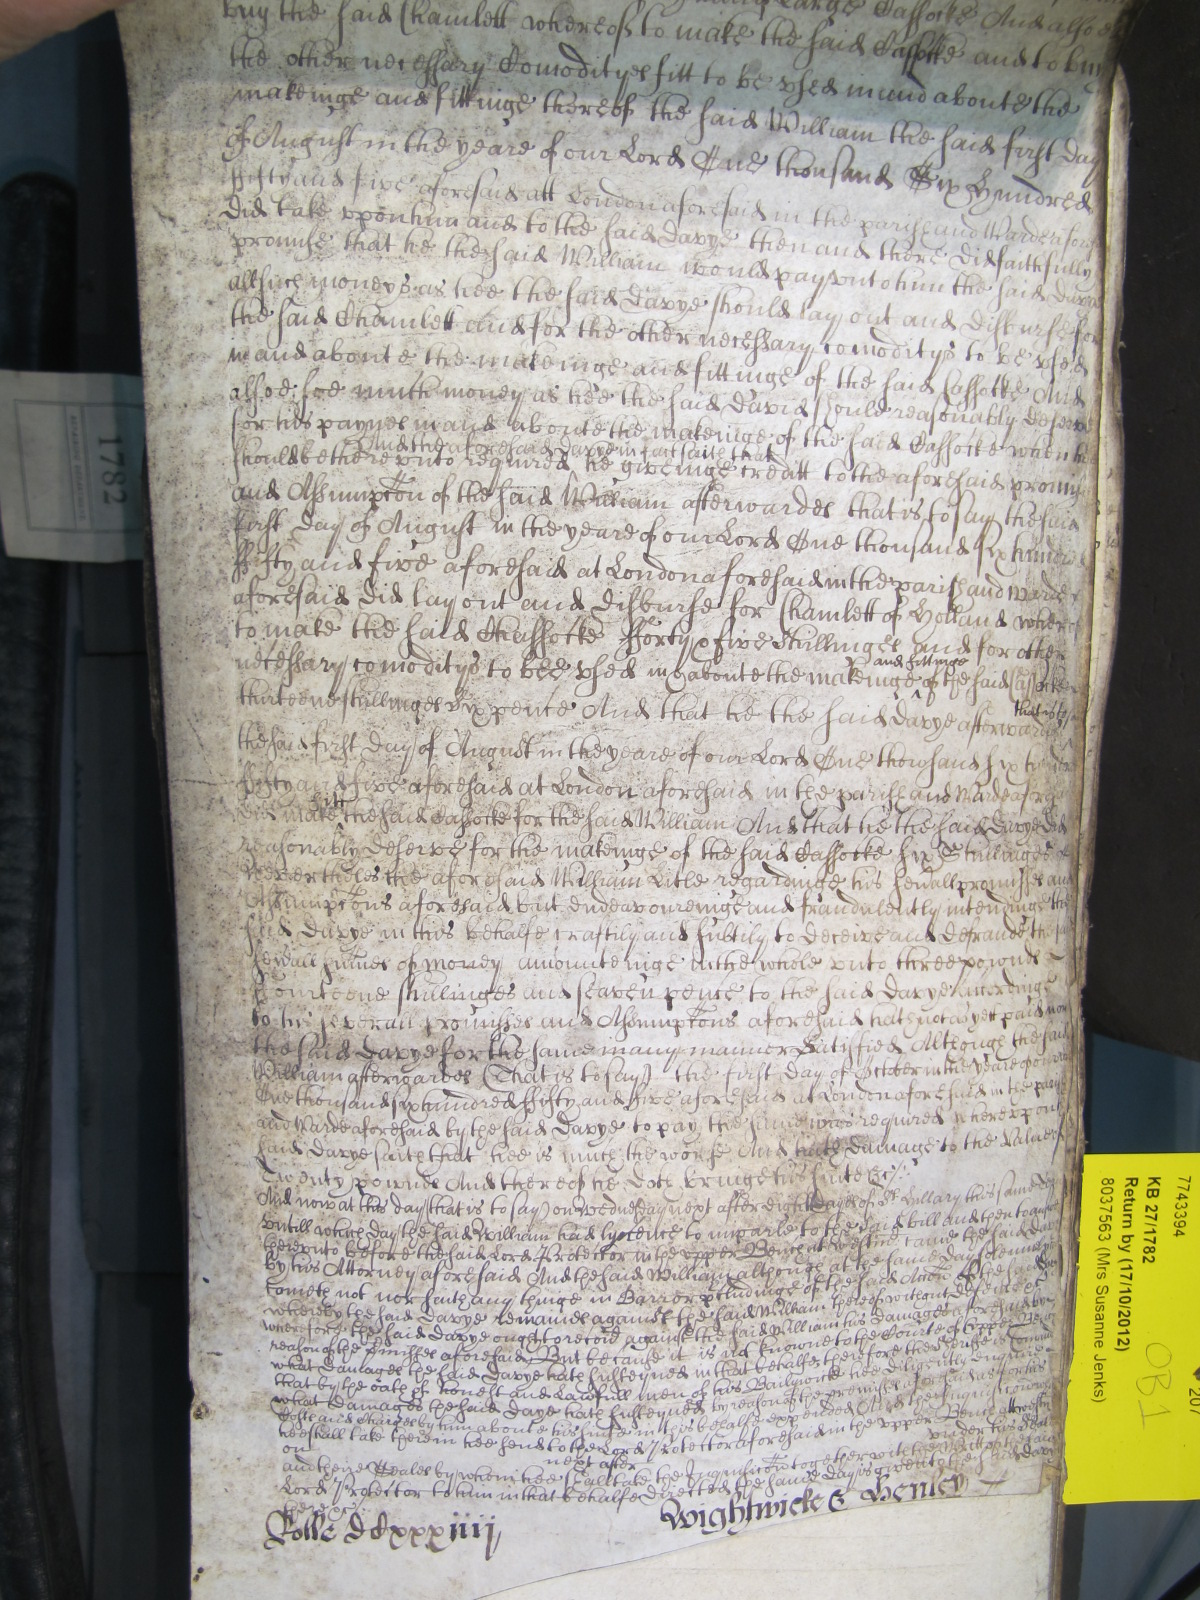 large Cassocke And alsoe
buy the said Chamlett whereof to make the said Cassocke and to buy
the other necessary Comodityes fitt to be vsed in and aboute the
makeinge and fittinge thereof the said William the said first day
of August in the yeare of our Lord One thousand Six Hundred
ffifty and five aforesaid att London aforesaid in the parish and Warde aforesaid
did take vppon him and to the said Davye then and there did faithfully
promise that he the said William would pay vnto him the said Davye
all such moneys as hee the said Davye should lay out and disburse for
the said Chamlett and for the other necessary comoditys to be vsed
in and aboute the makeinge and fittinge of the said Cassocke And
alsoe soe much money as hee the said David should reasonably deserve
for his paynes in and aboute the makeinge of the said Cassocke when he
And the aforesaid Davye in fact saith that
should be therevnto required he giveinge creditt to the aforesaid promise
and Assumpcon of the said William afterwardes that is to say the said
first day of August in the yeare of our Lord One thousand six hundred
ffifty and five aforesaid at London aforesaid in the parish and Warde
aforesaid did lay out and disburse for Chamlett of Holland whereof
to make the said Chassocke fforty & five Shillinges and for other
necessary comoditys to bee vsed in & aboute the makeinge and fittinge of the said Cassocke
thirteene shillinges Six pence And that he the said Davye afterwards that is to
the said first day of August in the yeare of our Lord One thousand six hundred
ffifty and five aforesaid at London aforesaid in the parish and Warde aforesaid
did make the said Cassocke for the said William And that he the said Davye did
reasonably deserve for the makeinge of the said Cassocke six Shillinges
Neverthelesse the aforesaid William Litle regardinge his sevall promisses and
Assumptons aforesaid but endeavoureinge and fraudulently intendinge the
said Davye in this behalfe craftily and subtily to deceive and defraude the said
sevall summes of money amounteinge in the whole vnto three pownds
ffourteene shillinges and seaven pence to the said Davye Accordinge
to his severall promisses and Assumptons aforesaid hath not as yett paid nor
the said Davye for the same in any manner Satisfied Although the said
William afterwardes (That is to say) the first day of October in the yeare of our Lord
One thousand six hundred ffifty and five aforesaid at London aforesaid in the parish
and Warde aforesaid by the said Davye to pay the same was required wherevpon the
said Davye saith that hee is much the worse And hath damage to the value of
Twenty pownds And thereof he doth bringe his suite &c
And now at this day that is to say on Wednesday next after eight dayes of St Hillary this same
vntill which day the said William had lycence to imparle to the said bill and then to answer
therevnto before the said Lord Protector in the vpper Bench at Westmr came the said Davye
by his Attorney aforesaid And the said William although at the same day solemnely
cometh not nor saith any thinge in Barr or precludinge of the said Accon of the said
whereby the said Davye remained against the said William thereof without defence
wherefore the said Davye ought to recover against the said William his damages aforesaid by
reason of the pmisses aforesaid But because it is not knowne to the Courte of vpper Bench
what damages the said Davye hath susteyned in that behalfe therefore the Sheriffe is comand
that by the oath of honest and Lawfull men of his Bailywicke hee diligently enquire
what damages the said Davye hath susteyned by reason of the premises aforesaid as for his
Costs and Charges by him about his suite in this behalfe expended And the Inquisicon
hee shall take therein hee send to the Lord Protector aforesaid in the vpper Bench at Westmr
on next after vnder his seale
and theire Seales by whom hee shall take the Inquisicon together with the Writt of the said
Lord Protector to him in that behalfe directed the same day is given to the said Davye
there &c
Rolle Dcxxxiiij
Wightwicke & Henley
1782
7743394
KB 27/1782
Return by (17/10/2012)
8037563 (Mrs Susanne Jenks)
OB1